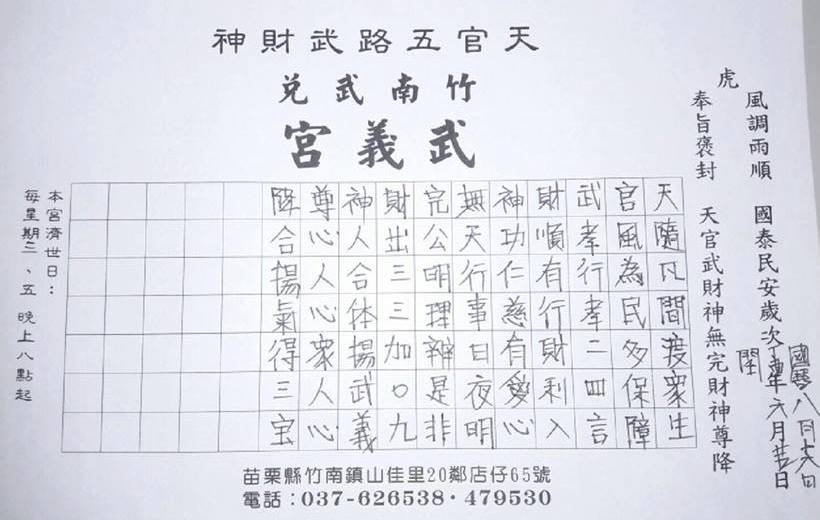 天官五路武財神
竹南武兌
武義宮
風調雨順　國泰民安歲次丁酉年六月廿日
國曆八月十六日
閏
虎
奉旨褒封　天官武財神無完財神尊降
天隨凡間渡眾生
官風為民多保障
武孝行孝二四言
財順有行財利入
神功仁慈有愛心
無天行事日夜明
完公明理辦是非
財出三三加〇九
神人合体揚武義
尊心人心眾人心
降合揚氣得三宝
本宮濟世日：
每星期三、五　晚上八點起
苗栗縣竹南鎮山佳里20鄰店仔65號
電話：037-626538・479530